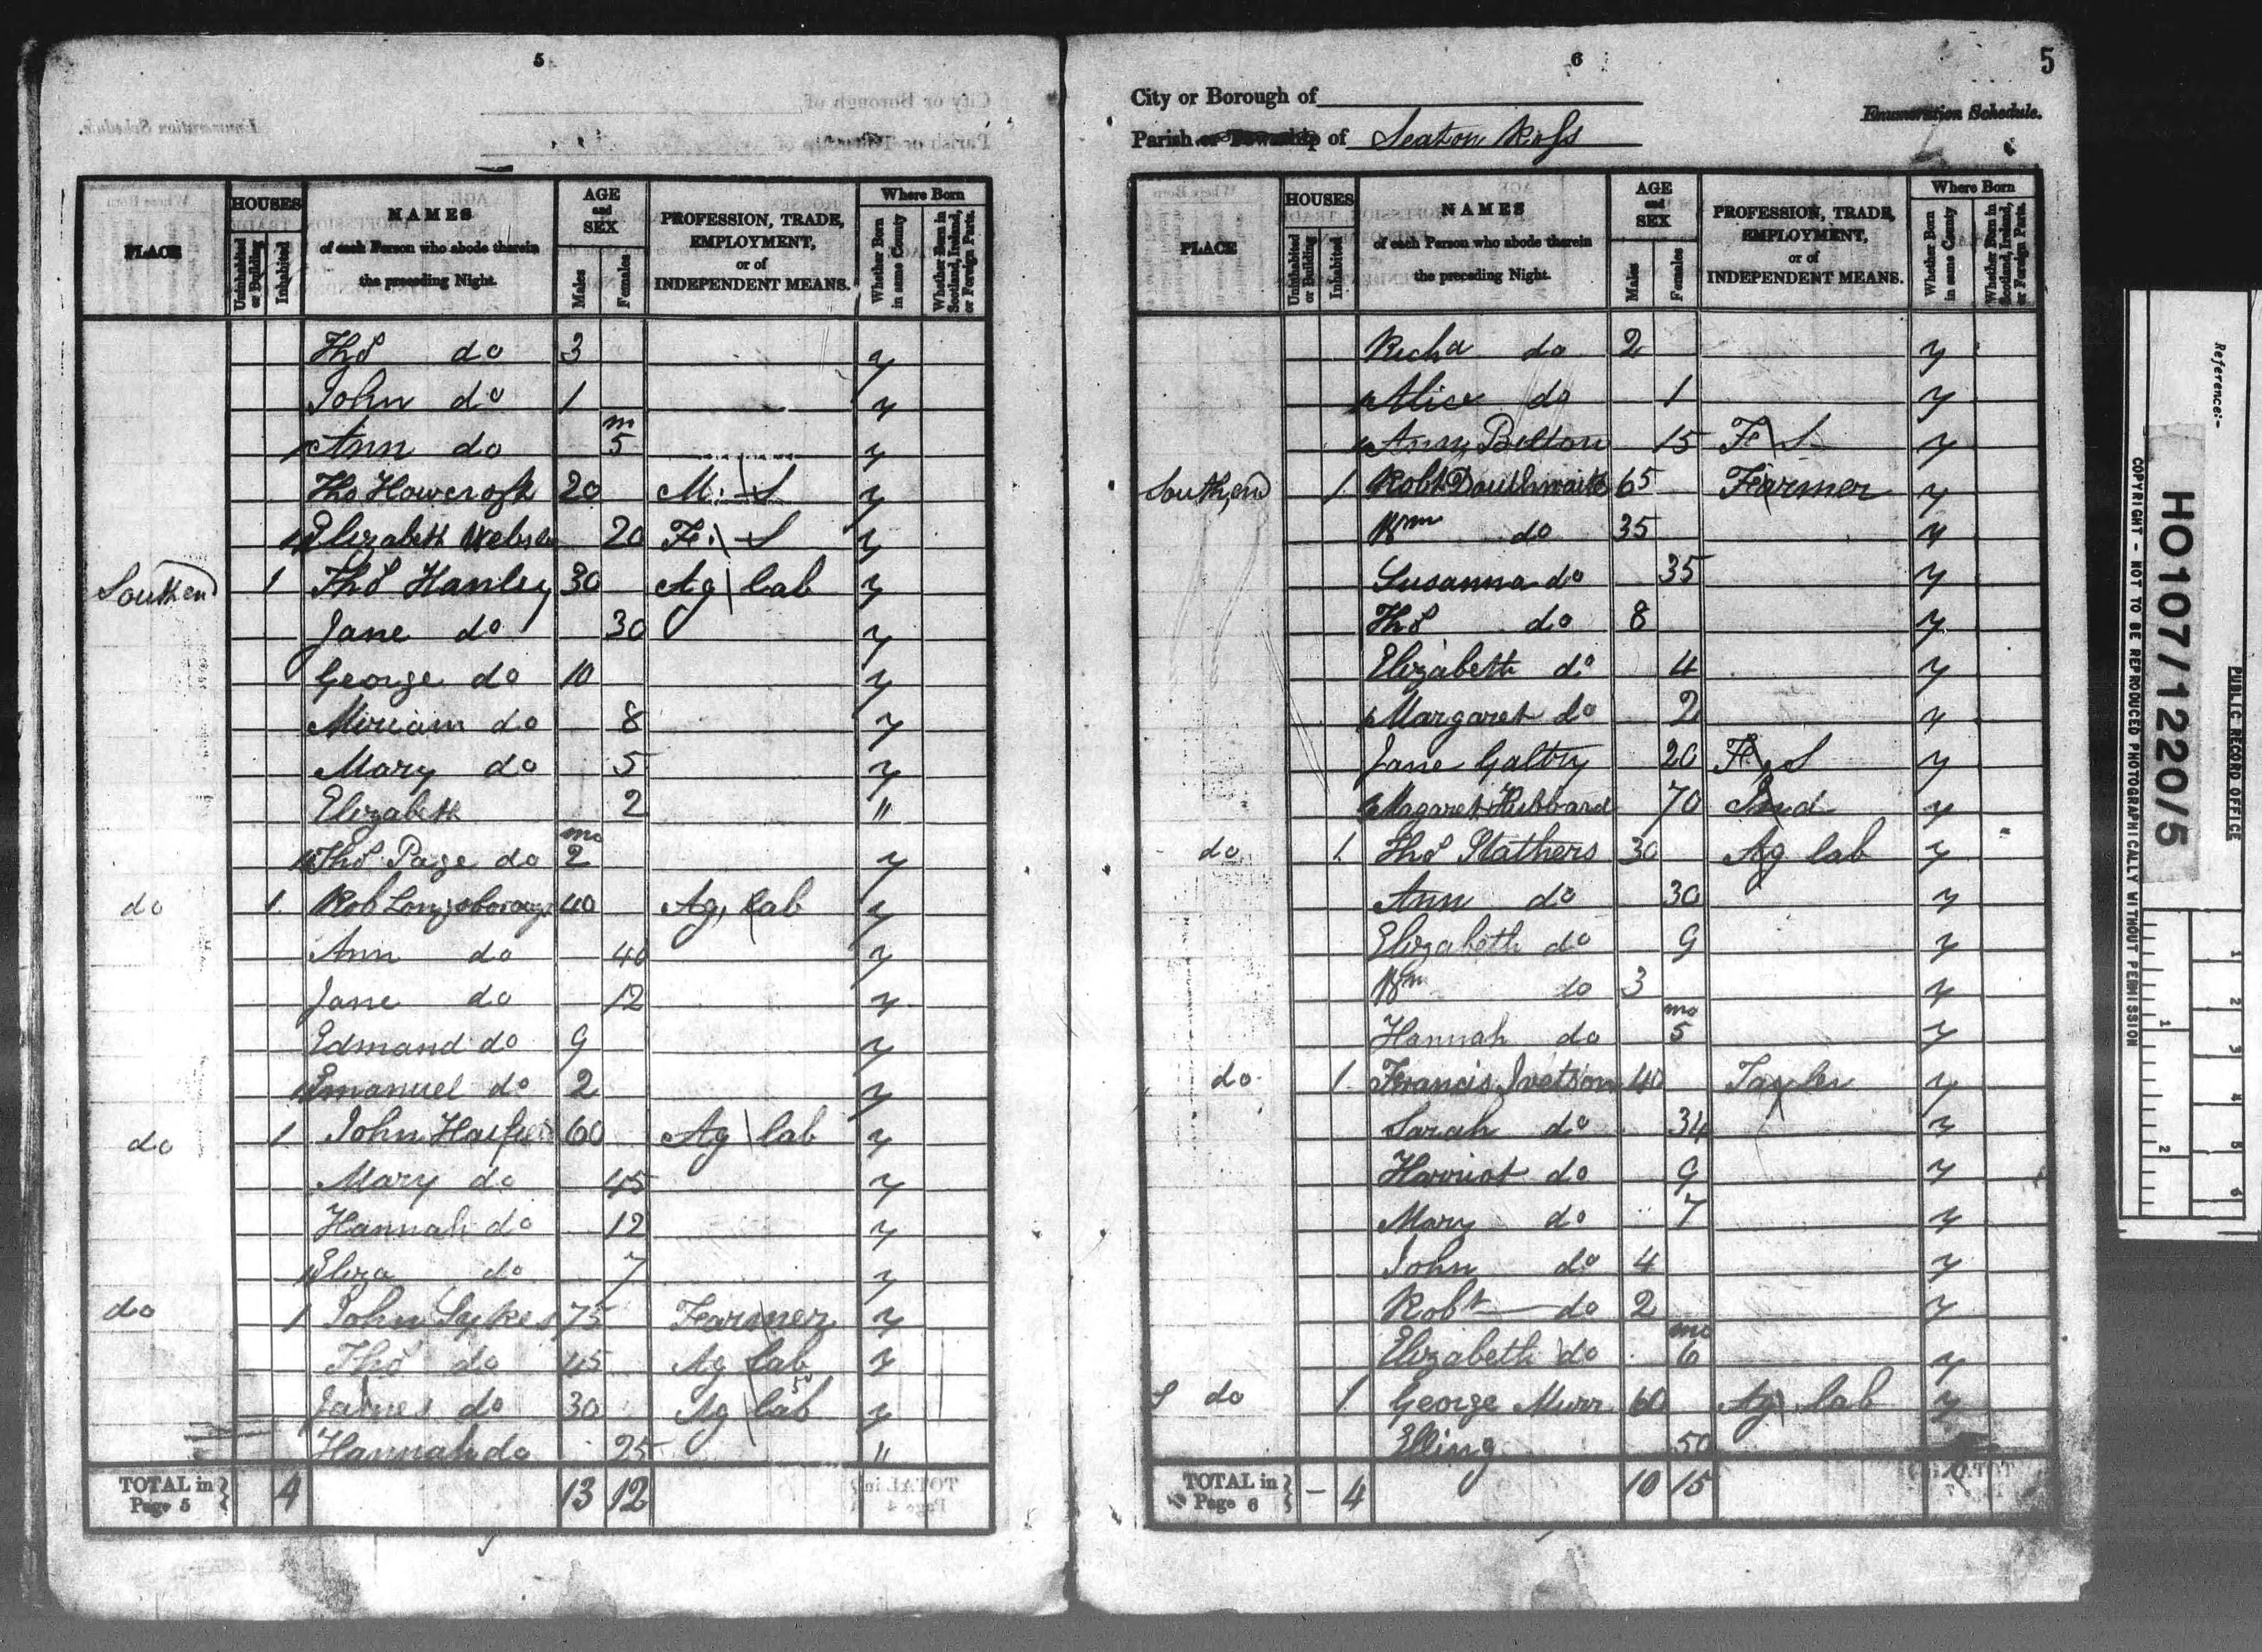 5
PLACE
HOUSES
Uninhabited or Building
Inhabited
NAMES
of each Person who abode therein
the preceding Night.
AGE and SEX
Males
Females
PROFESSION, TRADE,
EMPLOYMENT,
or of
INDEPENDENT MEANS.
Where Born
Whether Born in same County
Whether Born in Scotland, Ireland, or Foreign Parts.
Thos do 3 y
John do 1 y
Ann do m 5 y
Tho Howcroft 20 M. S y
Elizabeth Webster 20 F. S y
Southend 1 Thos Hanley 30 Ag lab y
Jane do 30 y
George do 10 y
Miriam do 8 y
Mary do 5 y
Elizabeth 2 "
Thos Page do mo 2 y
do 1 Rob 40 Ag lab y
Ann do 40 y
Jane do 12 y
Edmand do 9 y
Emanuel do 2 y
do 1 John 60 Ag lab y
Mary do 45 y
Hannah do 12 y
Eliza do 7 y
do 1 John Sykes 75 Farmer y
Thos do 45 Ag lab y
James do 30 Ag lab y
Hannah do 25 "
TOTAL in Page 5 } 4 13 12
6
5
City or Borough of
Enumeration Schedule.
Parish or Township of Seaton Ross
PLACE
HOUSES
Uninhabited or Building
Inhabited
NAMES
of each Person who abode therein
the preceding Night.
AGE and SEX
Males
Females
PROFESSION, TRADE,
EMPLOYMENT,
or of
INDEPENDENT MEANS.
Where Born
Whether Born in same County
Whether Born in Scotland, Ireland, or Foreign Parts.
Richd do 2 y
Alice do 1 y
Ann Belton 15 F S y
Southend 1 Robt Douthwaite 65 Farmer y
Wm do 35 y
Susanna do 35 y
Thos do 8 y
Elizabeth do 4 y
Margaret do 2 y
Jane Galtry 20 F S y
Magaret Hubbard 70 Ind y
do 1 Thos Stathers 30 Ag lab y
Ann do 30 y
Elizabeth do 9 y
Wm do 3 y
Hannah do mo 5 y
do 1 Francis Ivetson 40 Tayler y
Sarah do 34 y
Harriot do 9 y
Mary do 7 y
John do 4 y
Robt do 2 y
Elizabeth do mo 6 y
do 1 George Murr 60 Ag lab y
50
TOTAL in Page 6 } - 4 10 15
Reference:-
PUBLIC RECORD OFFICE
HO107/1220/5
COPYRIGHT - NOT TO BE REPRODUCED PHOTOGRAPHICALLY WITHOUT PERMISSION
1 2
1 2 3 4 5 6